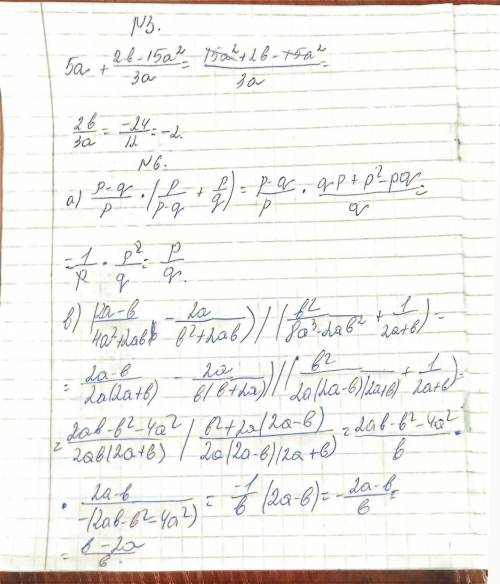 №3.
5a + (2b-15a²)/(3a) = (15a²+2b-15a²)/(3a) =
(2b)/(3a) = (-24)/(12) = -2.
№6.
а) (p-q)/p · (p/(p-q) + p/q) = (p-q)/p · (qp+p²-pq)/q =
= 1/p · p²/q = p/q.
в) ((2a-b)/(4a²+2ab) - 2a/(b²+2ab)) / (b²/(8a³-2ab²) + 1/(2a+b)) =
= (2a-b)/(2a(2a+b)) - 2a/(b(b+2a))) / (b²/(2a(2a-b)(2a+b)) + 1/(2a+b)) =
= (2ab-b²-4a²)/(2ab(2a+b)) / (b²+2a(2a-b))/(2a(2a-b)(2a+b)) = (2ab-b²-4a²)/b ·
· (2a-b)/(-(2ab-b²-4a²)) = -1/b (2a-b) = -(2a-b)/b =
= (b-2a)/b.